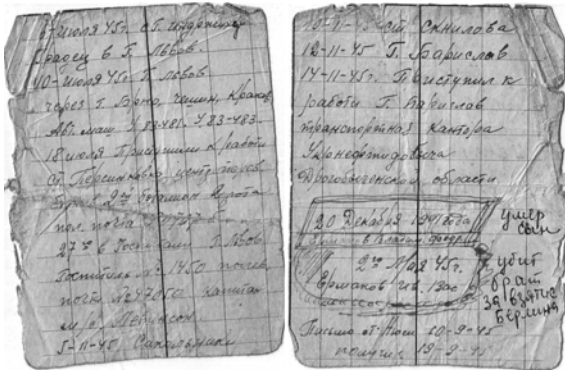 6-июля 45г. ст. Индржихув
Градец в Г. Львов.
10-июля 45г. Г. Львов
через Г. Брно, чешин, Краков
Авт. маш У 83-481. У 83-483
18 июля Приступили к работи
ст Персинковка центр
2ой батальон 2 рота
пол. почта
27го в Госпиталь Г. Львов
Госпиталь № 1450 полев
почта № 47050 капитан
м/с,
5-11-45, Сапольники
10-11-45 ст. Скнилова
12-11-45 Г. Барислав
14-11-45г. Приступил к
работи Г. Барислав
транспортная Кантора
Укрнефтидобича
Дрогобыченской области
20 Декабря 1941 года
умер
сын
2го Мая 45г.
Ермаков Ив. Вас
убит
брат
за взятие
Берлина
Письмо от Нюси 10-9-45
получил 19-9-45